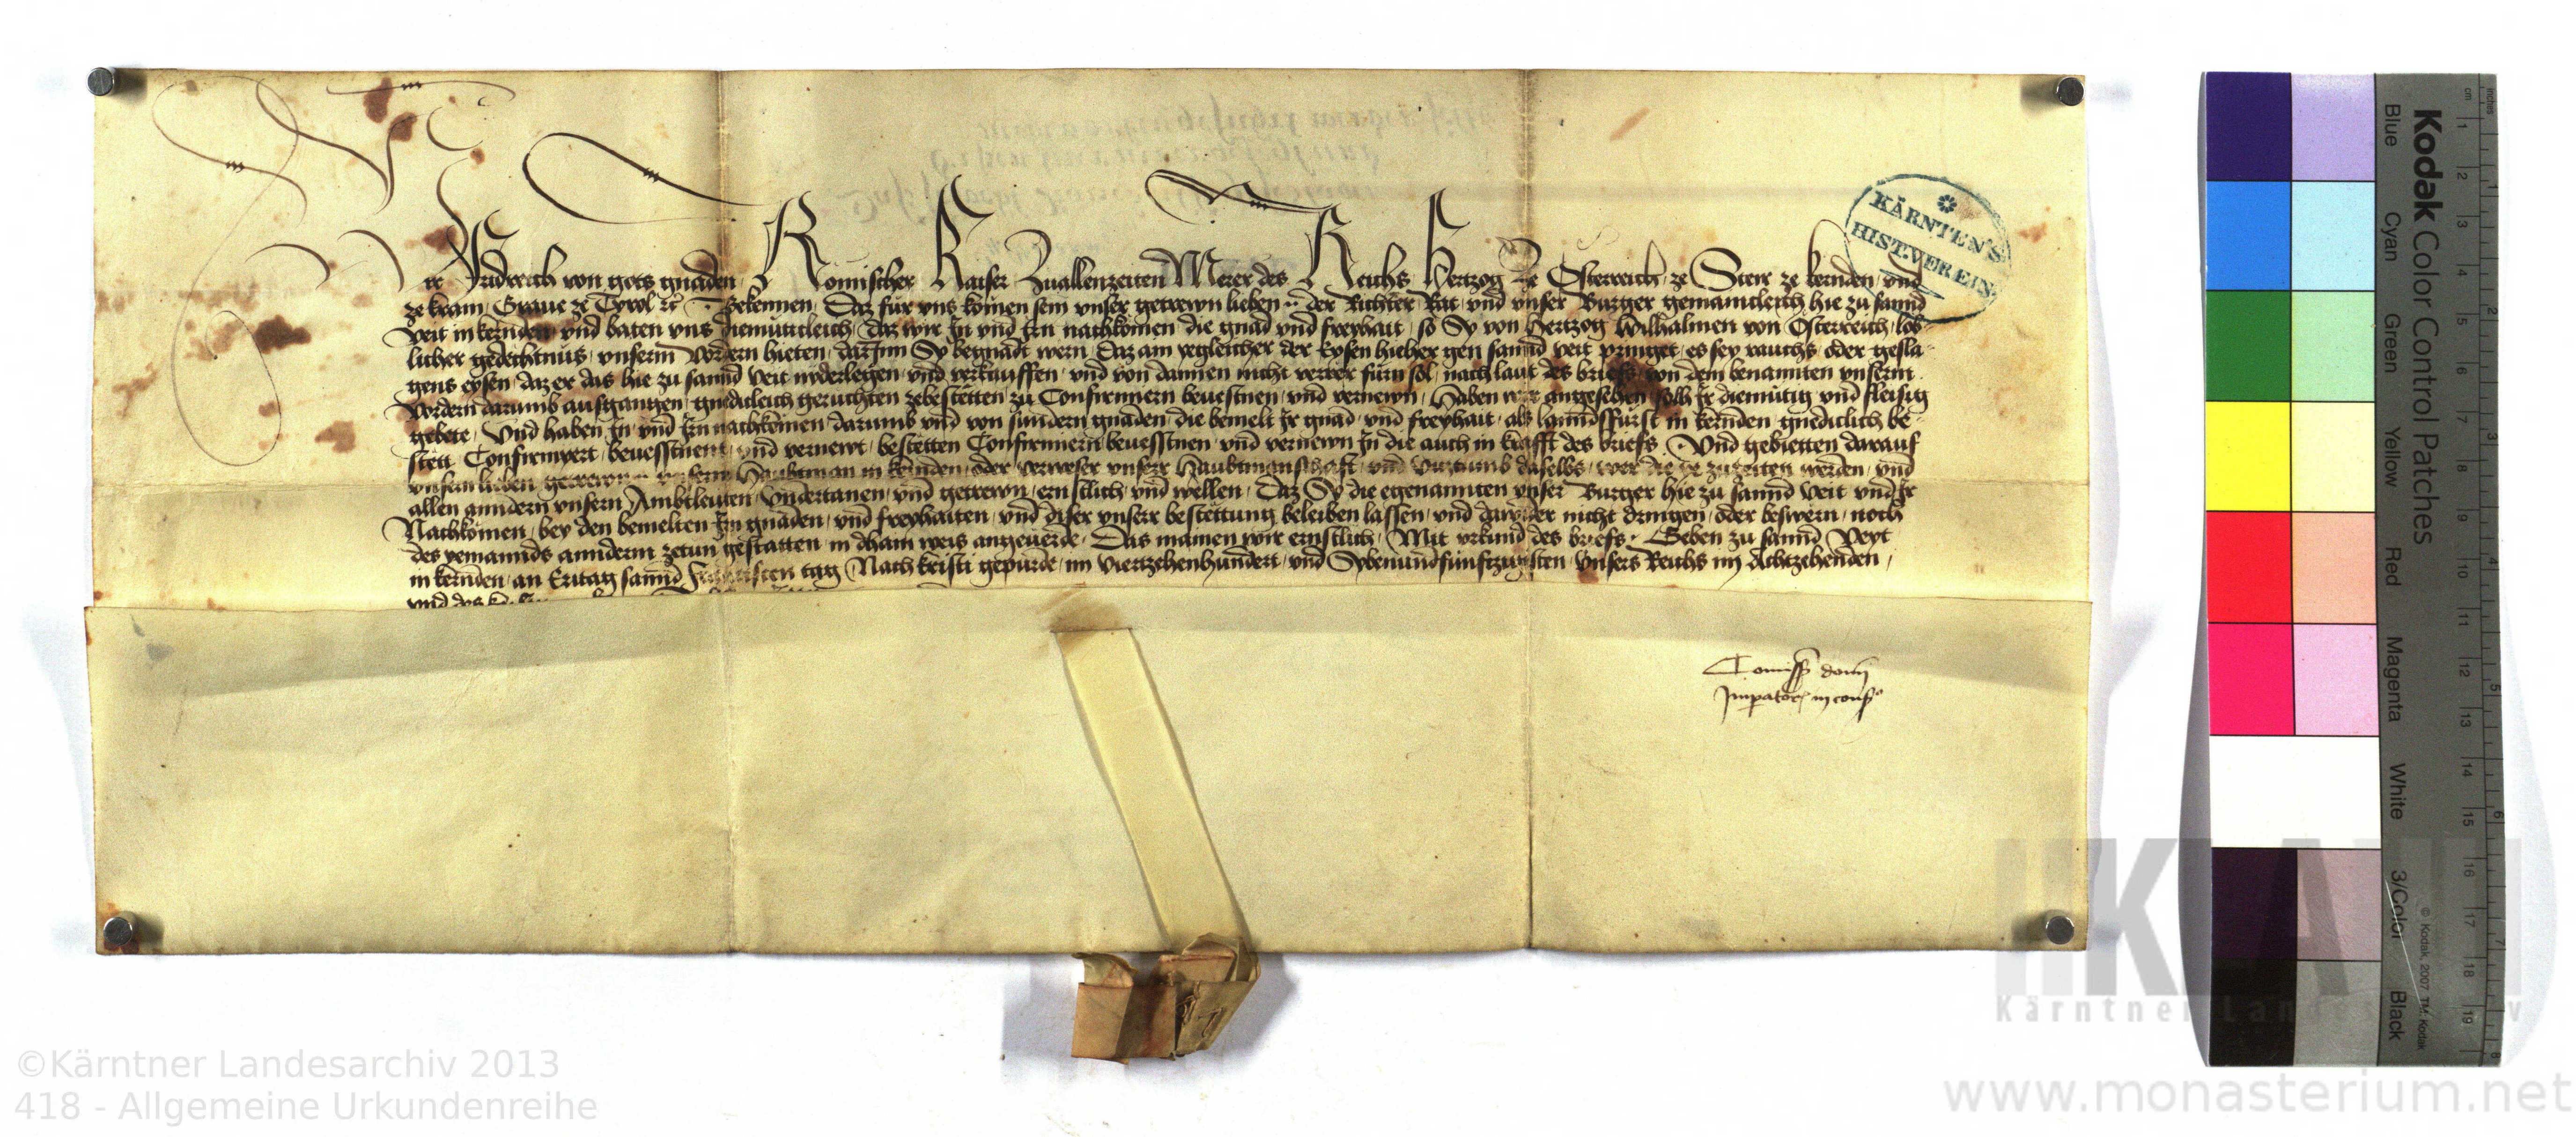 Wir Fridreich von gots gnaden Romischer Kaiser Zuallenczeiten Merer des Reichs Hertzog ze Österreich ze Steir ze kernden und
ze krain Graue ze Tyrol etc Bekennen Daz für vns komen sein vnser getrewn lieben der Richter Rat vnd vnser Burger gemainclich hie zu sannd
Veit in kernden vnd baten vns diemüticleich daz wir In vnd Irn nachkomen die gnad vnd freyhait so Sy von Hertzog Wilhalmen von Österreich lob-
licher gedechtnüs vnserm vordern hieten darInn Sy begnadt wern Daz ain yegleicher der Eysen hieher gen sannd veit bringet es sey rauchs oder gesla-
gens eysen daz er das hie zu sannd Veit niderlegen vnd verkauffen vnd von dannen nicht verrer fürn sol nach laut des briefs von dem benannten vnserm
vordern darumb ausgangen gnedicleich geruchten zebestetten zu Confirmiern beuestnen vnd vernewn Haben wir angesehen solh Ir diemütig vnd fleissig
gebete Vnd haben In vnd Irn nachkomen darumb vnd von sundern gnaden die bemelt Ir gnad vnd freyhait als lanndsfürst in kernden gnediclich be-
stett Confirmyert beuesstnent vnd vernewt bestetten Confirmiern beuesstnen vnd vernewn In die auch in krafft des briefs Vnd gebietten darauf
vnsern lieben getrewn vnserm Haubtman in kernden oder verweser vnserr Haubtmanschaft vnd Vitztumb daselbs wer die ye zuzeiten werden vnd
allen anndern vnsern Ambtleuten Vndertanen vnd getrewn ernstlich vnd wellen Daz Sy die egenannten vnser Burger hie zu sannd Veit vnd Ir
Nachkomen bey den bemelten Irn gnaden vnd freyhaiten vnd diser vnserr bestettung beleiben lassen vnd dawider nicht dringen oder beswern noch
des yemannds anndern zetun gestatten in dhain weis angeuerde Das mainen wir ernstlich Mit vrkund des briefs Geben zu sannd Veyt
in kernden an Eritag sannd tag Nach kristi gepurde im Viertzehenhundert vnd Sybenundfunftzigisten Vnsers Reichs im Achtzehenden
vnd des
KÄRNTEN'S
HIST.VEREIN
Comissio domini
Imperatoris in consilio
Kodak Color Control Patches
Blue Cyan Green Yellow Red Magenta White 3/Color Black
© Kodak, 2007 TM: Kodak
cm 1 2 3 4 5 6 7 8 9 10 11 12 13 14 15 16 17 18 19
inches 1 2 3 4 5 6 7 8
Kärntner Landesarchiv
©Kärntner Landesarchiv 2013
418 - Allgemeine Urkundenreihe
www.monasterium.net